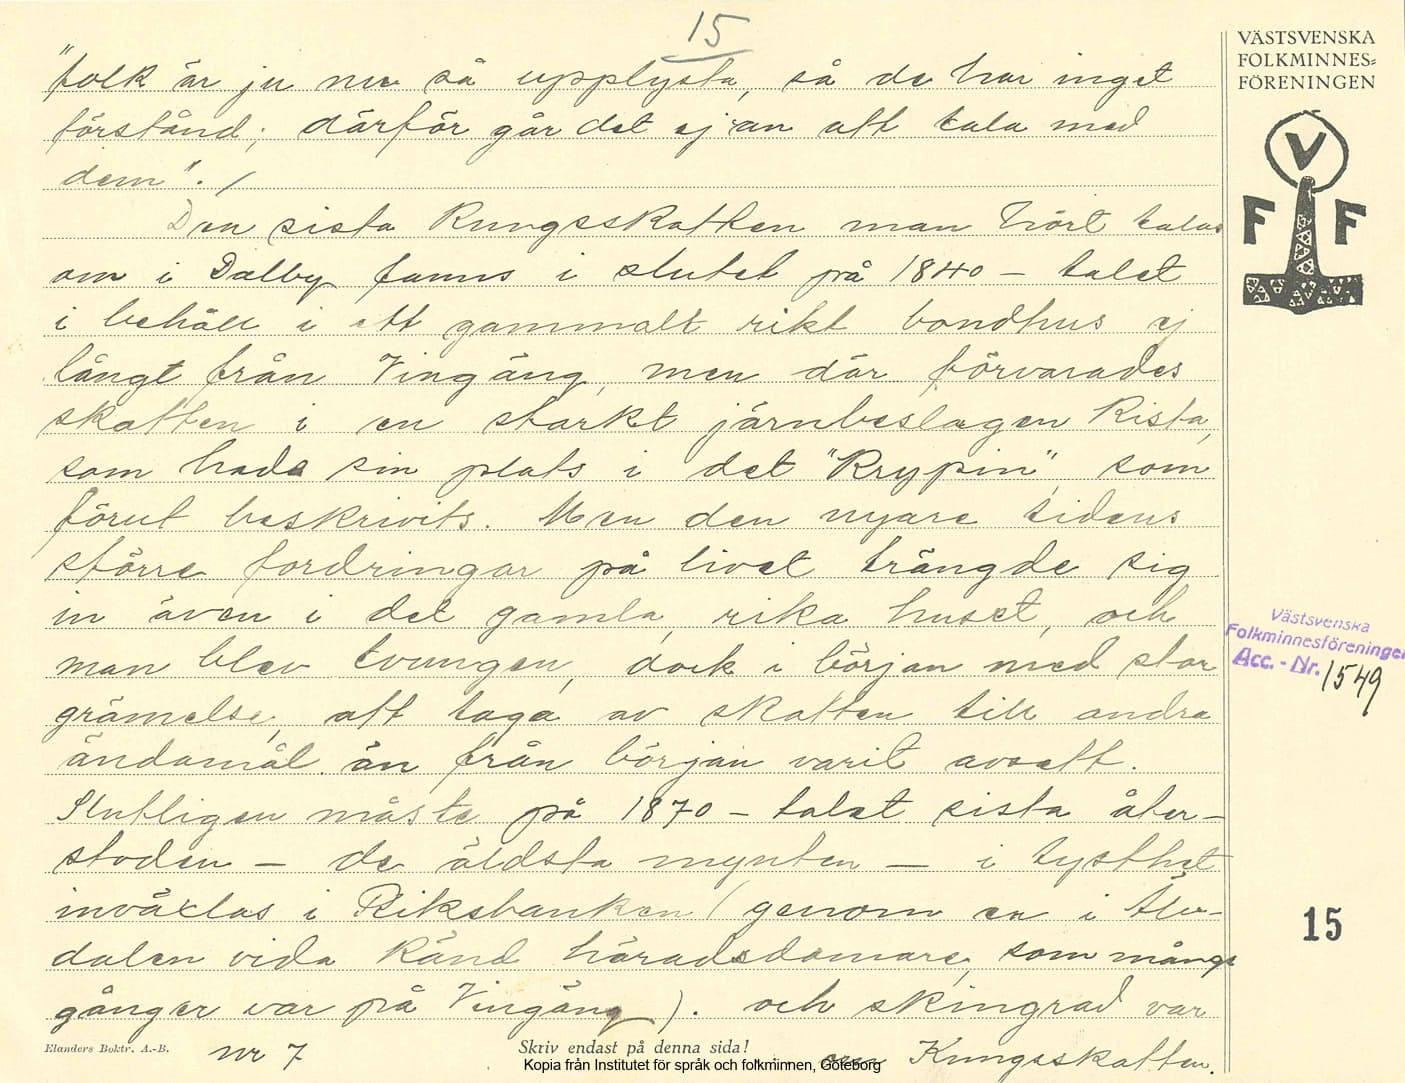 15
"folk är ju nu så upplysta, så de har inget
förstånd; därför går det ej an att tala med
dem".
Den sista Kungsskatten man hört talas
om i Dalby fanns i slutet på 1840-talet
i behåll i ett gammalt rikt bondhus ej
långt från Vingäng, men där förvarades
skatten i en starkt järnbeslagen Kista,
som hade sin plats i det "Krypin", som
förut beskrivits. Men den nyare tidens
större fordringar på livet trängde sig
in även i det gamla, rika huset, och
man blev tvungen, dock i början med stor
grämelse, att taga av skatten till andra
ändamål än från början varit avsett.
Slutligen måste på 1870-talet sista åter-
stoden — de äldsta mynten — i tysthet
inväxlas i Riksbanken (genom en i Älv-
dalen vida känd häradsdomare, som många
gånger var på Vingäng). och skingrad var
Kungsskatten.
nr 7
Elanders Boktr. A.-B.
Skriv endast på denna sida!
Kopia från Institutet för språk och folkminnen, Göteborg
VÄSTSVENSKA
FOLKMINNES-
FÖRENINGEN
V
F F
Västsvenska
Folkminnesföreningen
Acc. - Nr. 1549
15